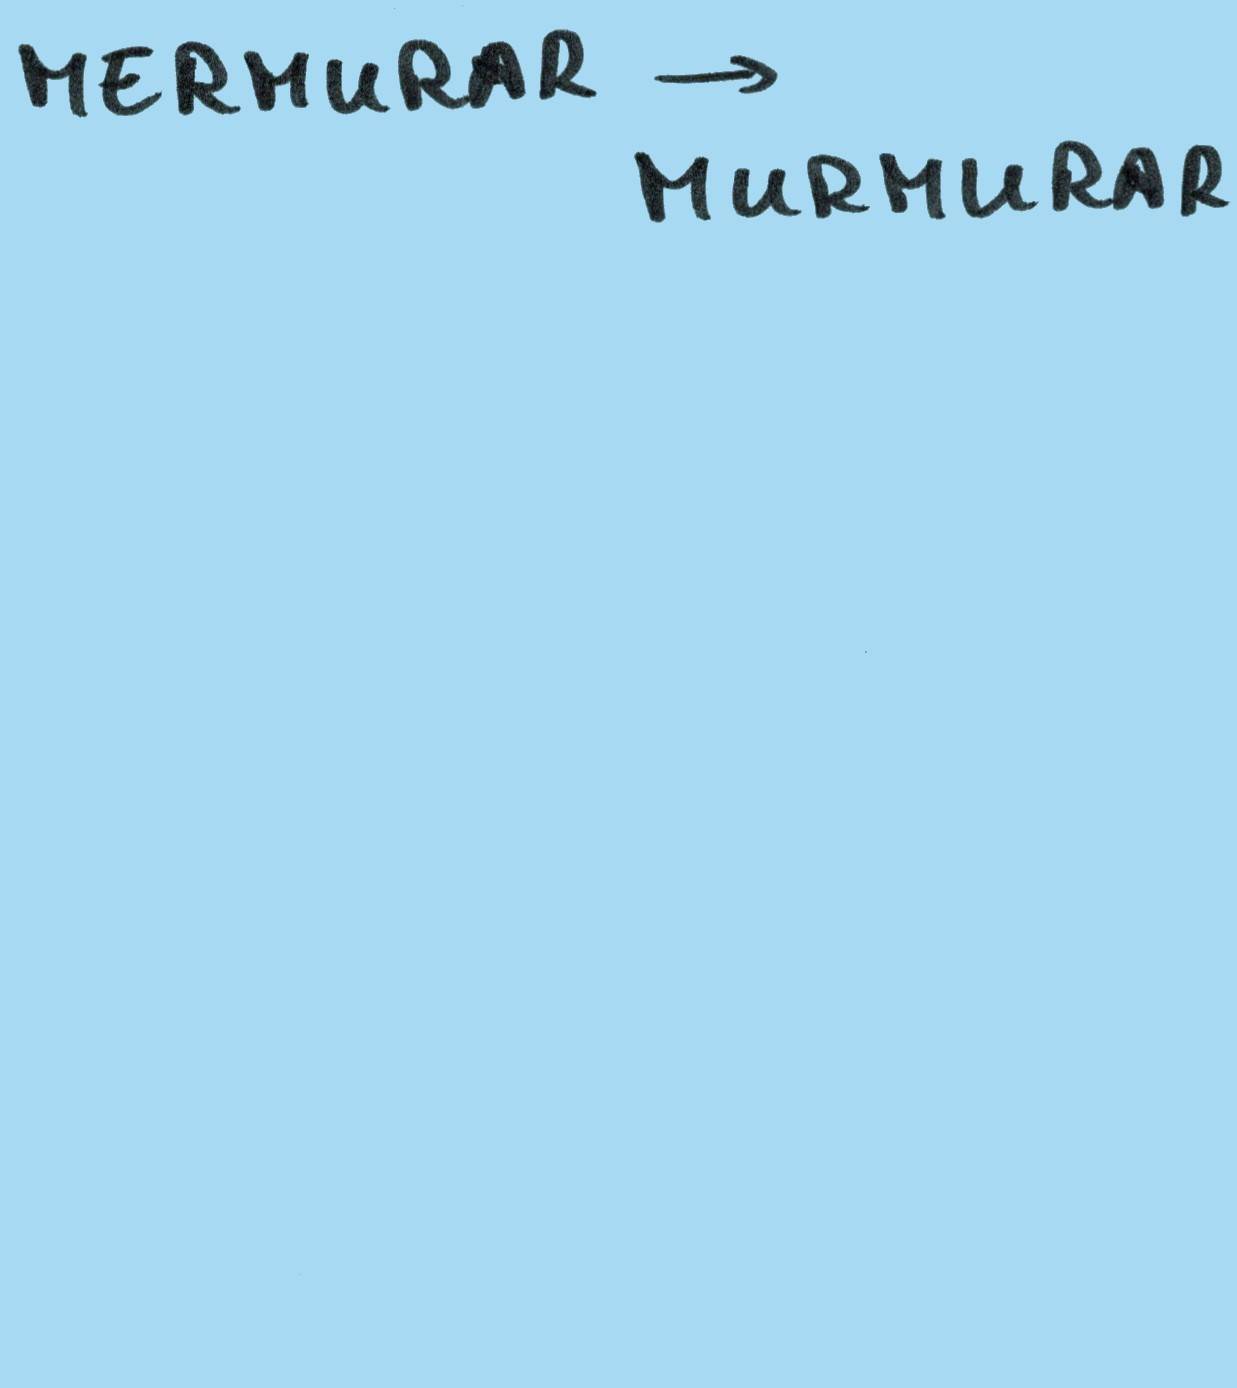 MERMURAR →
MURMURAR